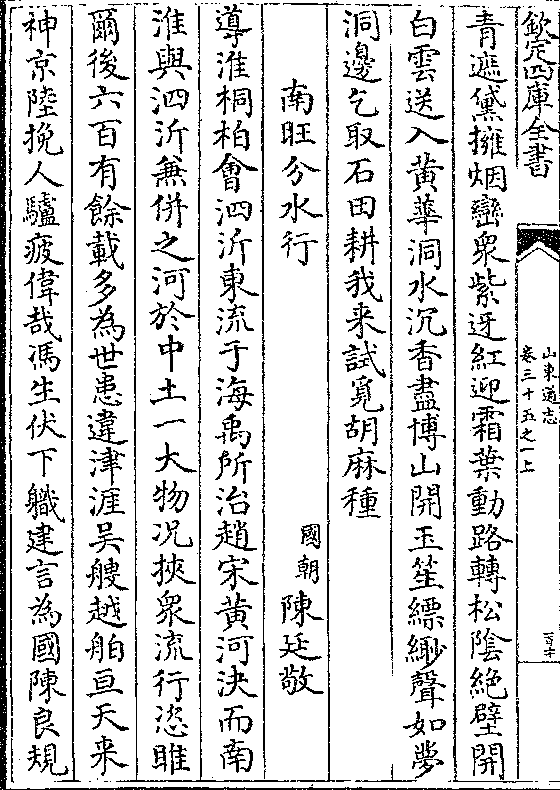 欽定四庫全書
山東通志
卷三十五之一上
青遮黛擁烟巒衆紫迓紅迎霜葉動路轉松陰絶壁開
白雲送入黄華洞水沉香盡博山開玉笙縹緲聲如夢
洞邊乞取石田耕我来試覓胡麻種
南旺分水行
國朝陳廷敬
導淮桐柏會泗沂東流于海禹所治趙宋黄河決而南
淮與泗沂兼併之河於中土一大物况挾衆流行恣睢
爾後六百有餘載多為世患違津涯吴艘越舶亘天来
神京陸挽人驢疲偉哉馮生伏下職建言為國陳良規